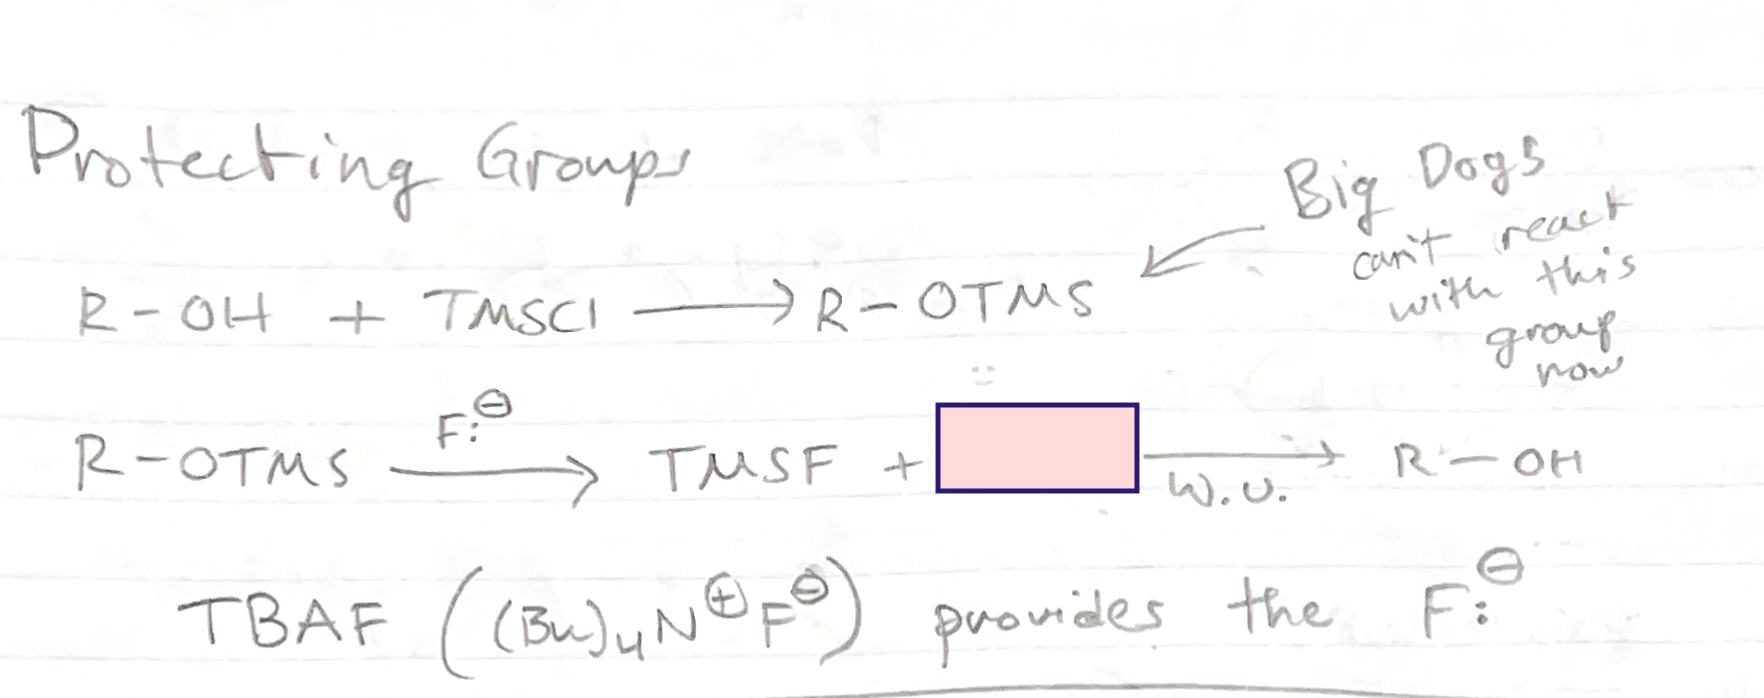 Protecting Groups
Big Dogs
can't react
with this
group
now
R-OH + TMSCl ⟶ R-OTMS
R-OTMS F:⊖ ⟶ TMSF + ⟶ W.U. R-OH
TBAF ((Bu)₄N⊕F⊖) provides the F:⊖